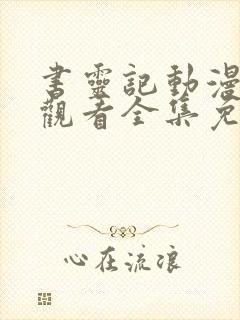 書靈記動漫
觀看全集免
心在流浪